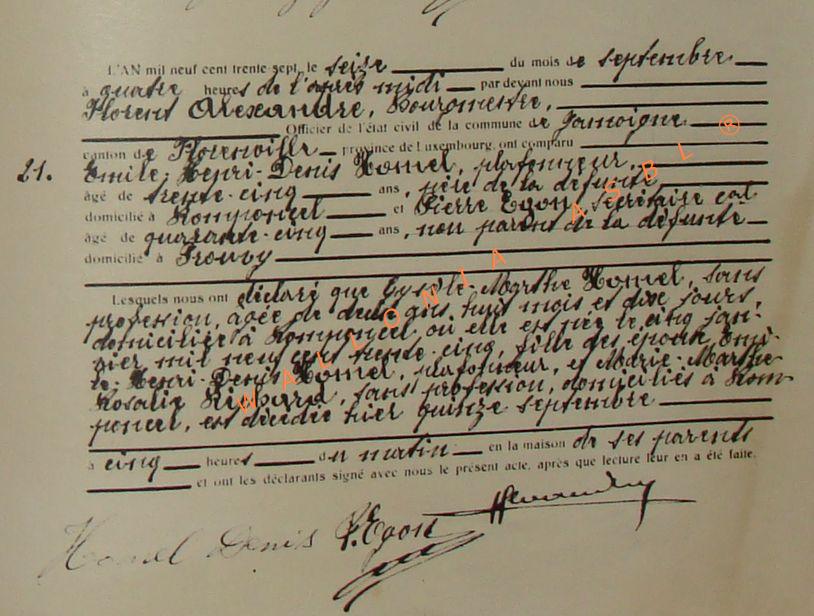 L'AN mil neuf cent trente-sept, le seize du mois de septembre
à quatre heures de l'après midi par devant nous
Florent Alexandre, Bourgmestre,
Officier de l'état civil de la commune de Jamoigne
canton de Florenville province de Luxembourg, ont comparu
21. Emile-Henri-Denis Homel, plafonneur,
âgé de trente-cinq ans, père de la défunte
domicilié à Romponcel et Pierre Egon, Secrétaire cal
âgé de quarante-cinq ans, non parent de la défunte
domicilié à Frouvy
Lesquels nous ont déclaré que Marthe Homel, sans
profession, âgée de deux ans, huit mois et dix jours,
domiciliée à Romponcel où elle est née le cinq jan-
vier mil neuf cent trente cinq, fille des époux Emi-
le-Henri-Denis Homel, plafonneur, et Marie-Marthe
Rosalie, sans profession, domiciliés à Rom-
poncel, est décédée hier quinze septembre
à cinq heures du matin en la maison de ses parents
et ont les déclarants signé avec nous le présent acte, après que lecture leur en a été faite.
Homel Denis P. Egon
WALLONIA ASBL ®